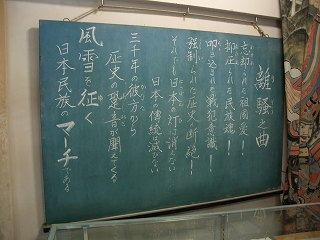 離騒之曲
忘却られた祖国愛！
抑圧られた民族魂！
叩き込まれた戦犯意識！
強制られた歴史断絶！
それでも日本の灯は消えない
日本の傳統は滅びない
三千年の彼方から
歴史の跫音が聞えてくる
風雪を征く
日本民族のマーチである